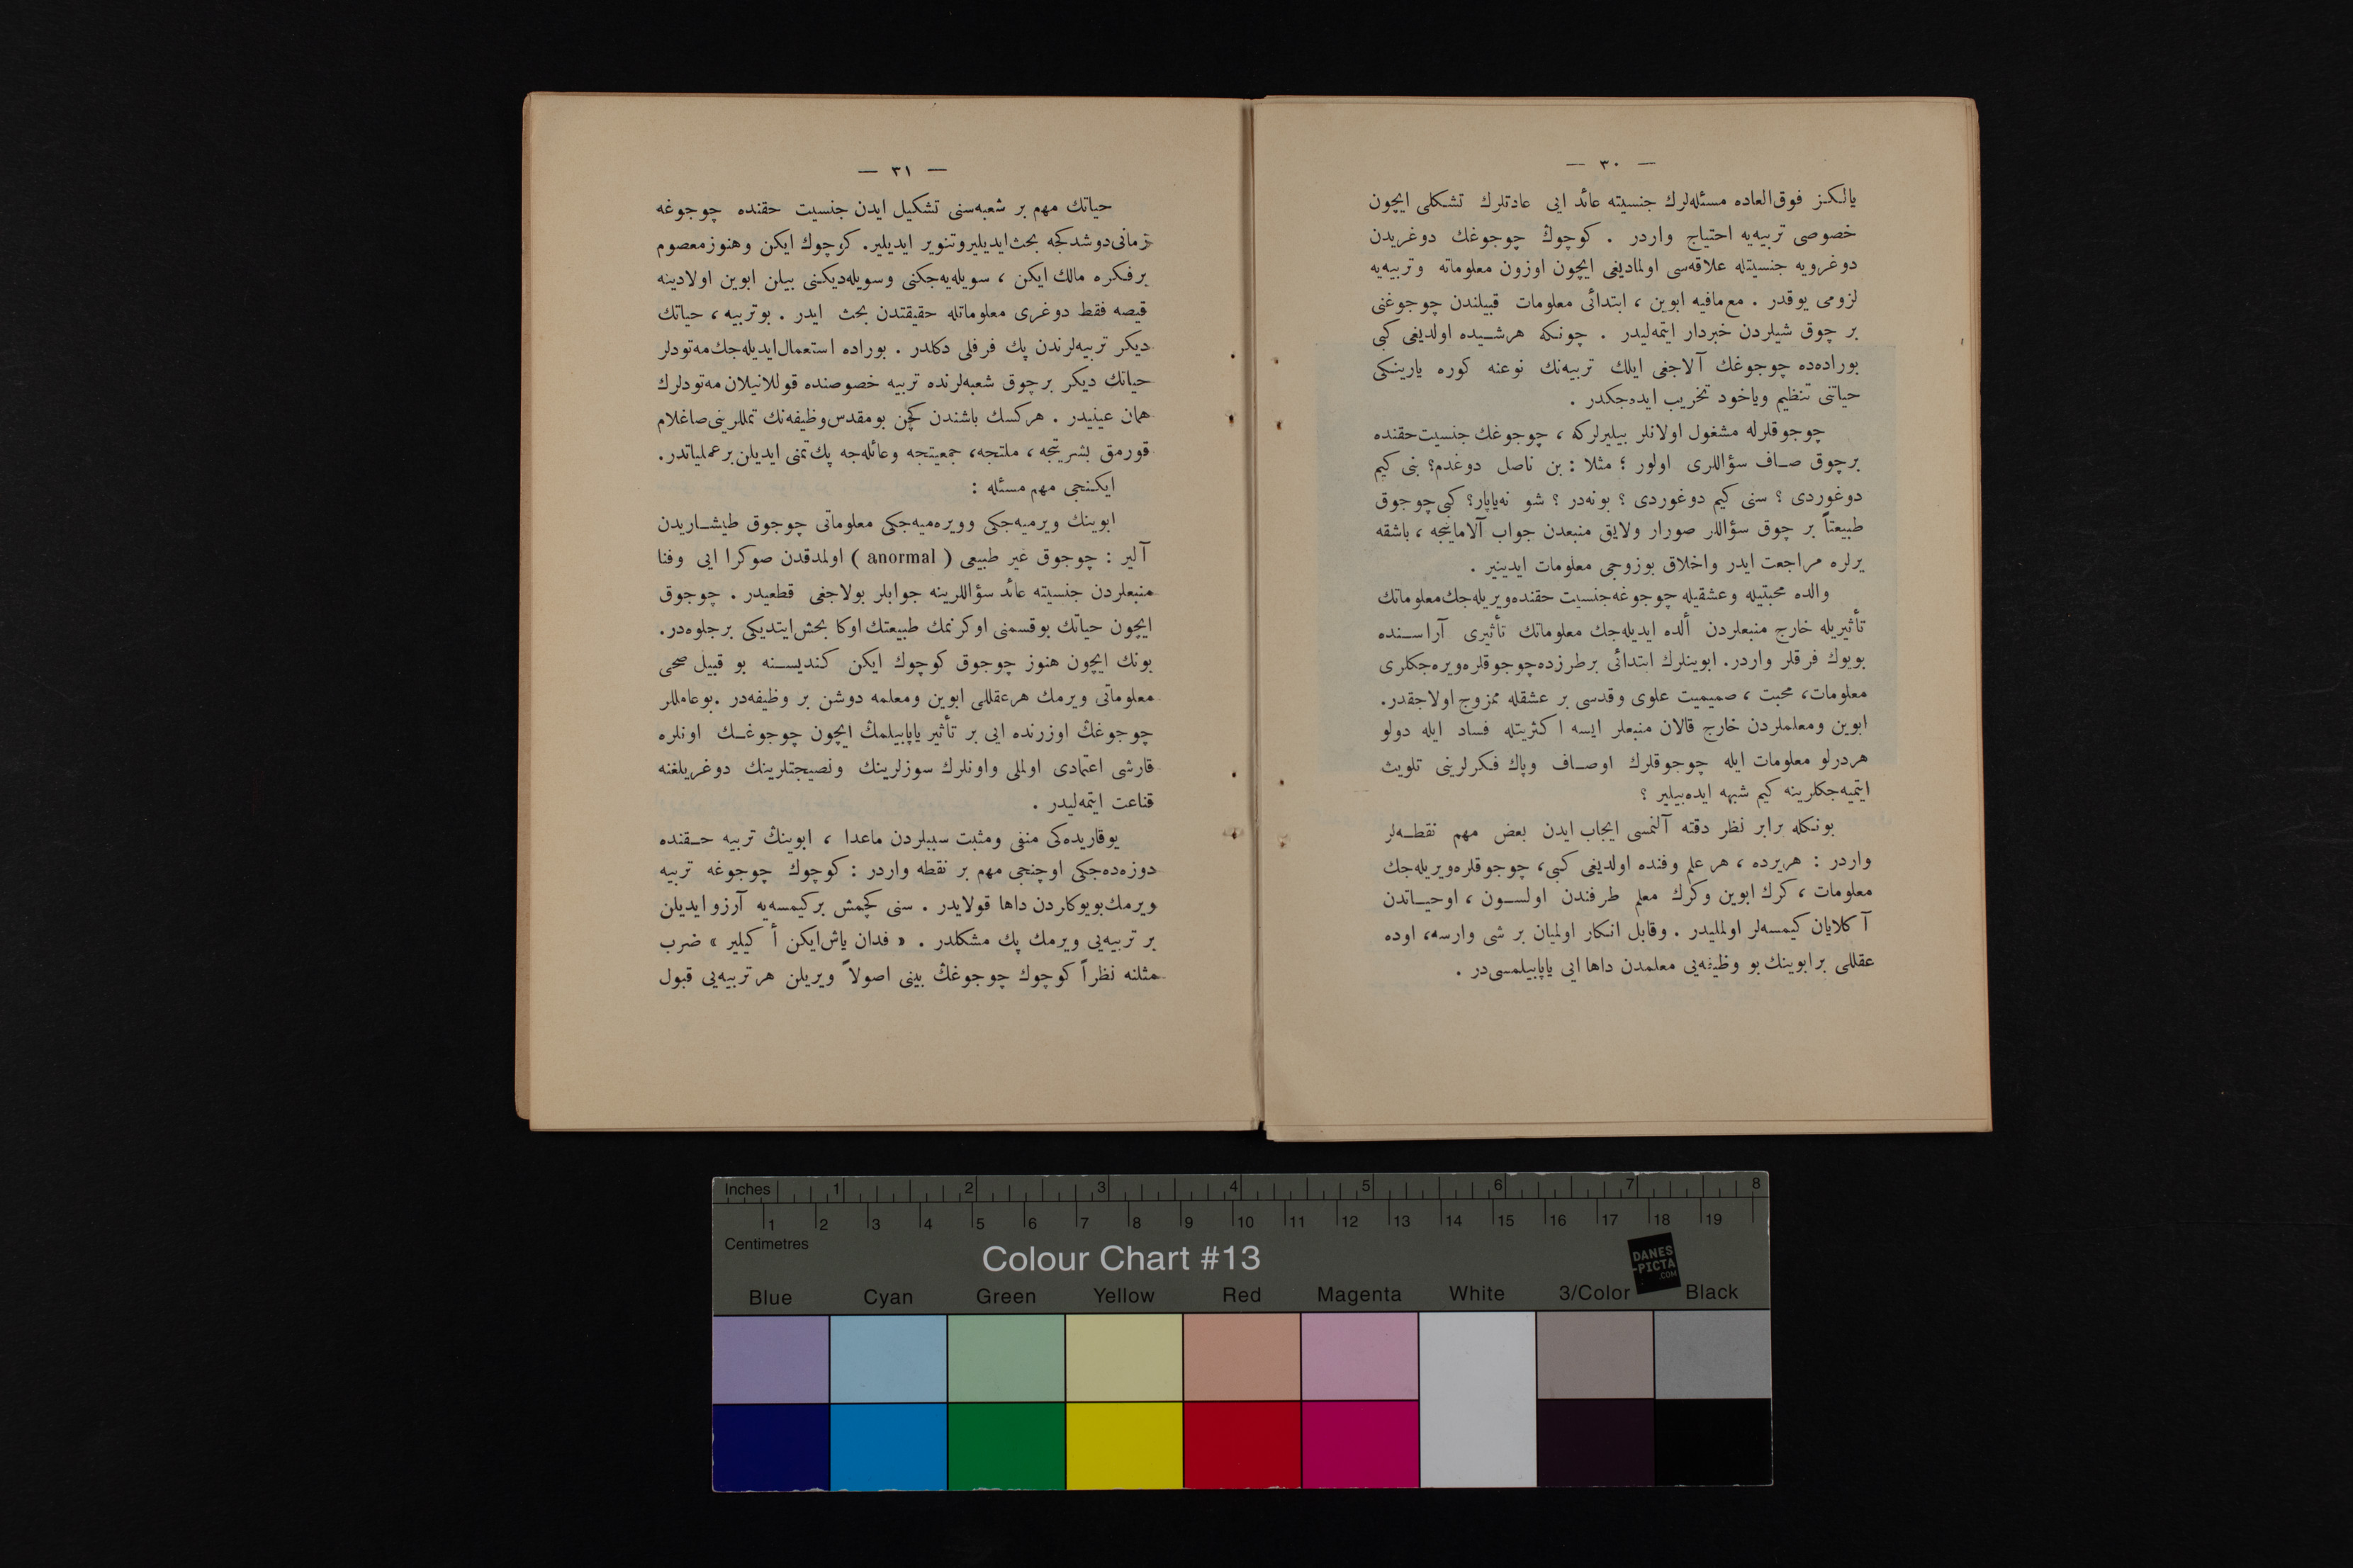 — ٣٠ —
يالكز فوق‌العاده مسئله‌لرك جنسيته عائد ايى عادتلرك تشكلى ايچون
خصوصى تربيه‌يه احتياج واردر . كوچوك چوجوغك دوغريدن
دوغرويه جنسيتله علاقه‌سى اولماديغى ايچون اوزون معلوماته وتربيه‌يه
لزومى يوقدر . مع‌مافيه ابوين ، ابتدائى معلومات قبيلندن چوجوغنى
بر چوق شيلردن خبردار ايتمه‌ليدر . چونكه هرشيده اولديغى كبى
بوراده‌ده چوجوغك آلاجغى ايلك تربيه‌نك نوعنه كوره يارينكى
حياتنى تنظيم وياخود تخريب ايده‌جكدر .
چوجوقلرله مشغول اولانلر بيليرلركه ، چوجوغك جنسيت حقنده
برچوق صاف سؤاللرى اولور ؛ مثلا : بن ناصل دوغدم؟ بنى كيم
دوغوردى ؟ سنى كيم دوغوردى ؟ بونه‌در ؟ شو نه‌ياپار؟ كبى چوجوق
طبيعتاً بر چوق سؤاللر صورار ولايق منبعدن جواب آلاماينجه ، باشقه
يرلره مراجعت ايدر واخلاق بوزوجى معلومات ايدينير .
والده محبتيله وعشقيله چوجوغه جنسيت حقنده ويريله‌جك معلوماتك
تأثيريله خارج منبعلردن ألده ايديله‌جك معلوماتك تأثيرى آراسنده
بويوك فرقلر واردر. ابوينلرك ابتدائى برطرزده چوجوقلره ويره‌جكلرى
معلومات، محبت ، صميميت علوى وقدسى بر عشقله ممزوج اولاجقدر.
ابوين ومعلملردن خارج قالان منبعلر ايسه اكثريتله فساد ايله دولو
هردرلو معلومات ايله چوجوقلرك اوصاف وپاك فكرلرينى تلويث
ايتميه‌جكلرينه كيم شبهه ايده‌بيلير ؟
بونكله برابر نظر دقته آلنمسى ايجاب ايدن بعض مهم نقطه‌لر
واردر : هريرده ، هر علم وفنده اولديغى كبى، چوجوقلره ويريله‌جك
معلومات ، كرك ابوين وكرك معلم طرفندن اولسون ، اوحياتدن
آكلايان كيمسه‌لر اولمليدر . وقابل انكار اولميان بر شى وارسه، اوده
عقللى برابوينك بو وظيفه‌يى معلمدن داها ايى ياپابيلمسى‌در .
— ٣١ —
حياتك مهم بر شعبه‌سنى تشكيل ايدن جنسيت حقنده چوجوغه
زمانى دوشدكجه بحث ايديليروتنوير ايديلير. كوچوك ايكن وهنوزمعصوم
برفكره مالك ايكن ، سويله‌يه‌جكنى وسويله‌ديكنى بيلن ابوين اولادينه
قيصه فقط دوغرى معلوماتله حقيقتدن بحث ايدر . بوتربيه ، حياتك
ديكر تربيه‌لرندن پك فرقلى دكلدر . بوراده استعمال‌ايديله‌جك مه‌تودلر
حياتك ديكر برچوق شعبه‌لرنده تربيه خصوصنده قوللانيلان مه‌تودلرك
همان عينيدر . هركسك باشندن كچن بومقدس‌وظيفه‌نك تمللرينى‌صاغلام
قورمق بشريتجه ، ملتجه، جمعيتجه وعائله‌جه پك تمنى ايديلن برعملياتدر.
ايكنجى مهم مسئله :
ابوينك ويرميه‌جكى وويره‌ميه‌جكى معلوماتى چوجوق طيشاريدن
آلير : چوجوق غير طبيعى ( anormal ) اولمدقدن صوكرا ايى وفنا
منبعلردن جنسيته عائد سؤاللرينه جوابلر بولاجغى قطعيدر . چوجوق
ايچون حياتك بوقسمنى اوكرنمك طبيعتك اوكا بخش‌ايتديكى برجلوه‌در.
بونك ايچون هنوز چوجوق كوچوك ايكن كنديسنه بو قبيل صحى
معلوماتى ويرمك هرعقللى ابوين ومعلمه دوشن بر وظيفه‌در .بوعامللر
چوجوغك اوزرنده ايى بر تأثير ياپابيلمك ايچون چوجوغك اونلره
قارشى اعتمادى اولملى واونلرك سوزلرينك ونصيحتلرينك دوغريلغنه
قناعت ايتمه‌ليدر .
يوقاريده‌كى منفى ومثبت سببلردن ماعدا ، ابوينك تربيه حقنده
دوزه‌ده‌جكى اوچنجى مهم بر نقطه واردر : كوچوك چوجوغه تربيه
ويرمك‌بويوكلردن داها قولايدر . سنى كچمش بركيمسه‌يه آرزو ايديلن
بر تربيه‌يى ويرمك پك مشكلدر . « فدان ياش‌ايكن أ كيلير » ضرب
مثلنه نظراً كوچوك چوجوغك بينى اصولاً ويريلن هر تربيه‌يى قبول
Inches 1 2 3 4 5 6 7 8
1 2 3 4 5 6 7 8 9 10 11 12 13 14 15 16 17 18 19
Centimetres
Colour Chart #13
DANES
-PICTA
.COM
Blue Cyan Green Yellow Red Magenta White 3/Color Black